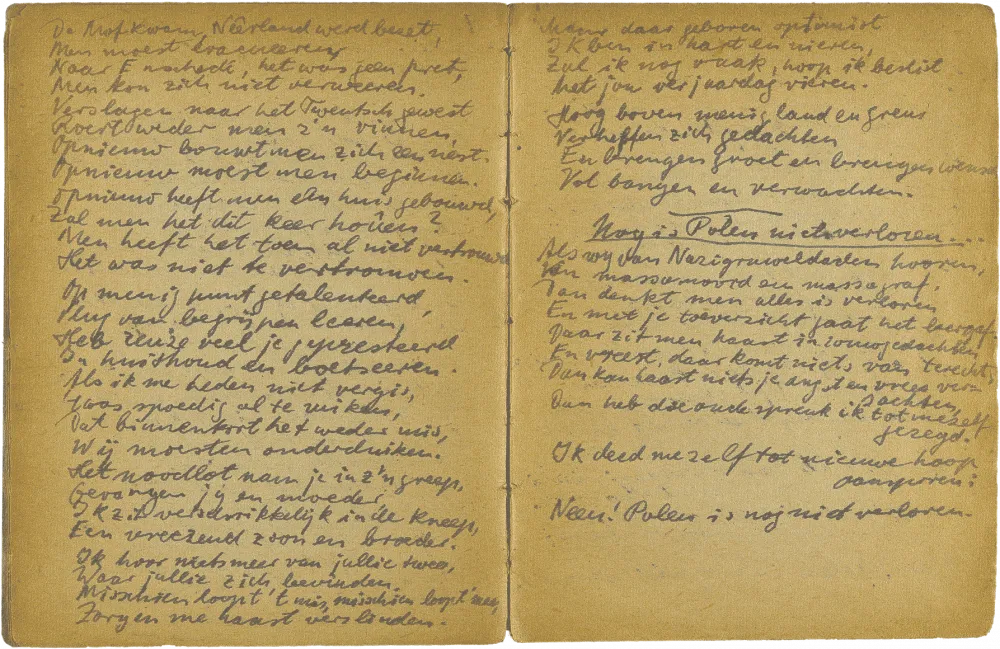 De Mof kwam, Neerland werd bezet,
Men moest evacueeren
Naar Enschedé, het was geen pret,
Men kon zich niet verweeren.
Verslagen naar het Twentsch gewest
Roert weder men z'n vinnen,
Opnieuw bouwt men zich een nest.
Opnieuw moest men beginnen.
Opnieuw heeft men een huis gebouwd,
Zal men het dit keer houën?
Men heeft het toen al niet vertrouwd
Het was niet te vertrouwen.
Op menig punt getalenteerd,
Vlug van begrijpen leeren,
Heb reuze veel je gepresteerd
In huishoud en boetseeren.
Als ik me heden niet vergis,
't was spoedig al te ruiken,
Dat binnenkort het weder mis,
Wij moesten onderduiken.
Het noodlot nam je in z'n greep,
Gevangen jij en moeder
Ik zit verschrikkelijk in de kneep,
Een vreezend zoon en broeder.
Ik hoor niets meer van jullie twee,
Waar jullie zich bevinden.
Misschien loopt 't mis, misschien loopt 't mee,
Zorgen me haast verslinden.
Maar daar geboren optimist
Ik ben in hart en nieren,
Zal ik nog vaak, hoop ik beslist
het jou verjaardag vieren.
Hoog boven menig land en grens
Verheffen zich gedachten
En brengen groet en brengen wensch
Vol bangen en verwachten.
Nog is Polen niet verloren...
Als wij van Nazigruweldaden hooren,
Van massamoord en massagraf,
Dan denkt men alles is verloren
En met je toeverzicht gaat het bergaf.
Daar zit men haast in zorggedachten,
En vreest, daar komt niets van terecht,
Dan kan haast niets je angst en vrees verzachten,
Dan heb die oude spreuk ik tot mezelf gezegd.
Ik deed mezelf tot nieuwe hoop aansporen:
Neen! Polen is nog niet verloren.